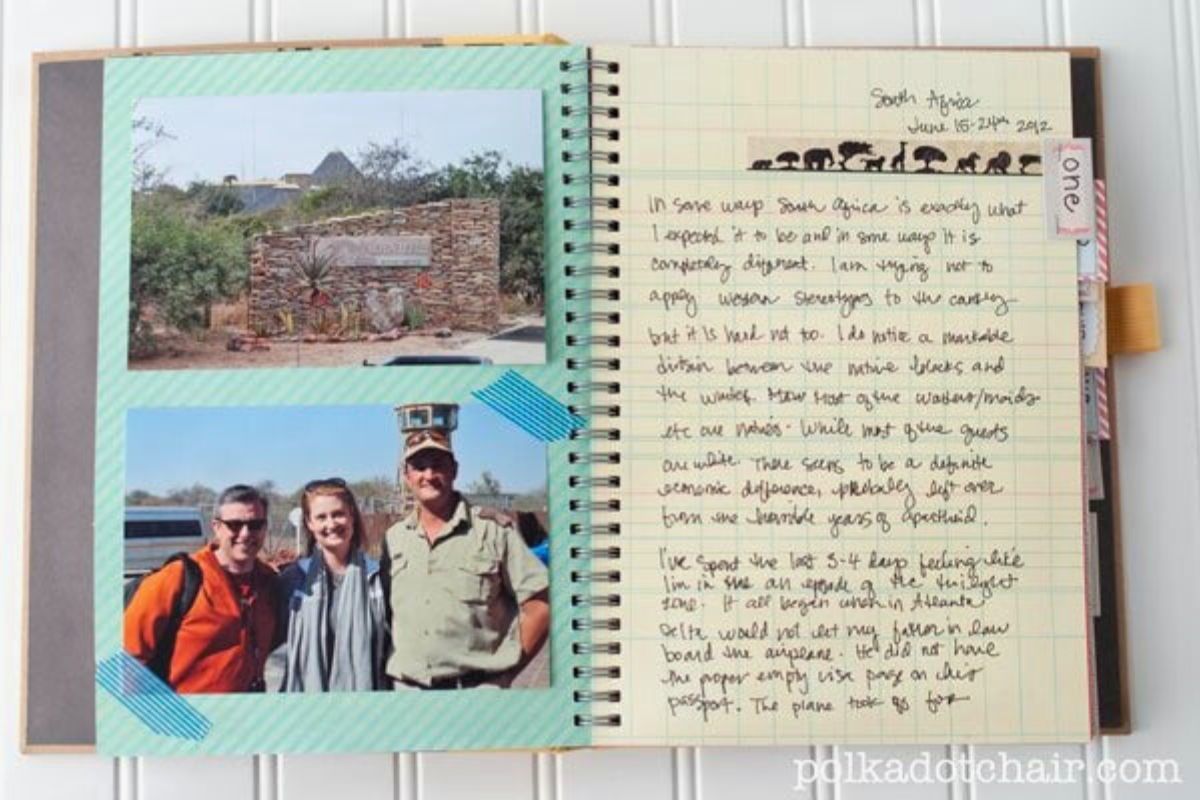 South Africa
June 15-24th 2012
one
In some ways South Africa is exactly what
I expected it to be and in some ways it is
completely different. I am trying not to
apply western stereotypes to the country
but it is hard not too. I do notice a
between the native blacks and
the Most of the waiters/maids
etc are natives. While most of the guests
are white. There seems to be a definite
economic difference, probably left over
from the horrible years of apartheid.
I've spent the last 3-4 days feeling like
I'm in an episode of the twilight
zone. It all began when in Atlanta
Delta would not let my father in law
board the airplane. He did not have
the proper empty visa page on his
passport. The plane took off for
polkadotchair.com